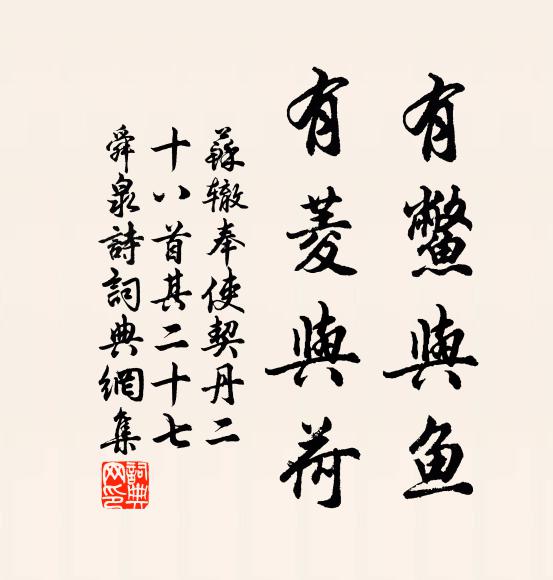 有鱉與鱼
有菱與荷
蘇辙奉使契丹二
十八首其二十七
舜泉詩詞典網集
詞典网印